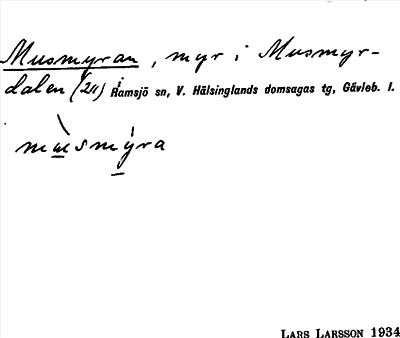 Musmyran, myr i Musmyr-
dalen (211) i Ramsjö sn, V. Hälsinglands domsagas tg, Gävleb. l.
mùsmýra
LARS LARSSON 1934